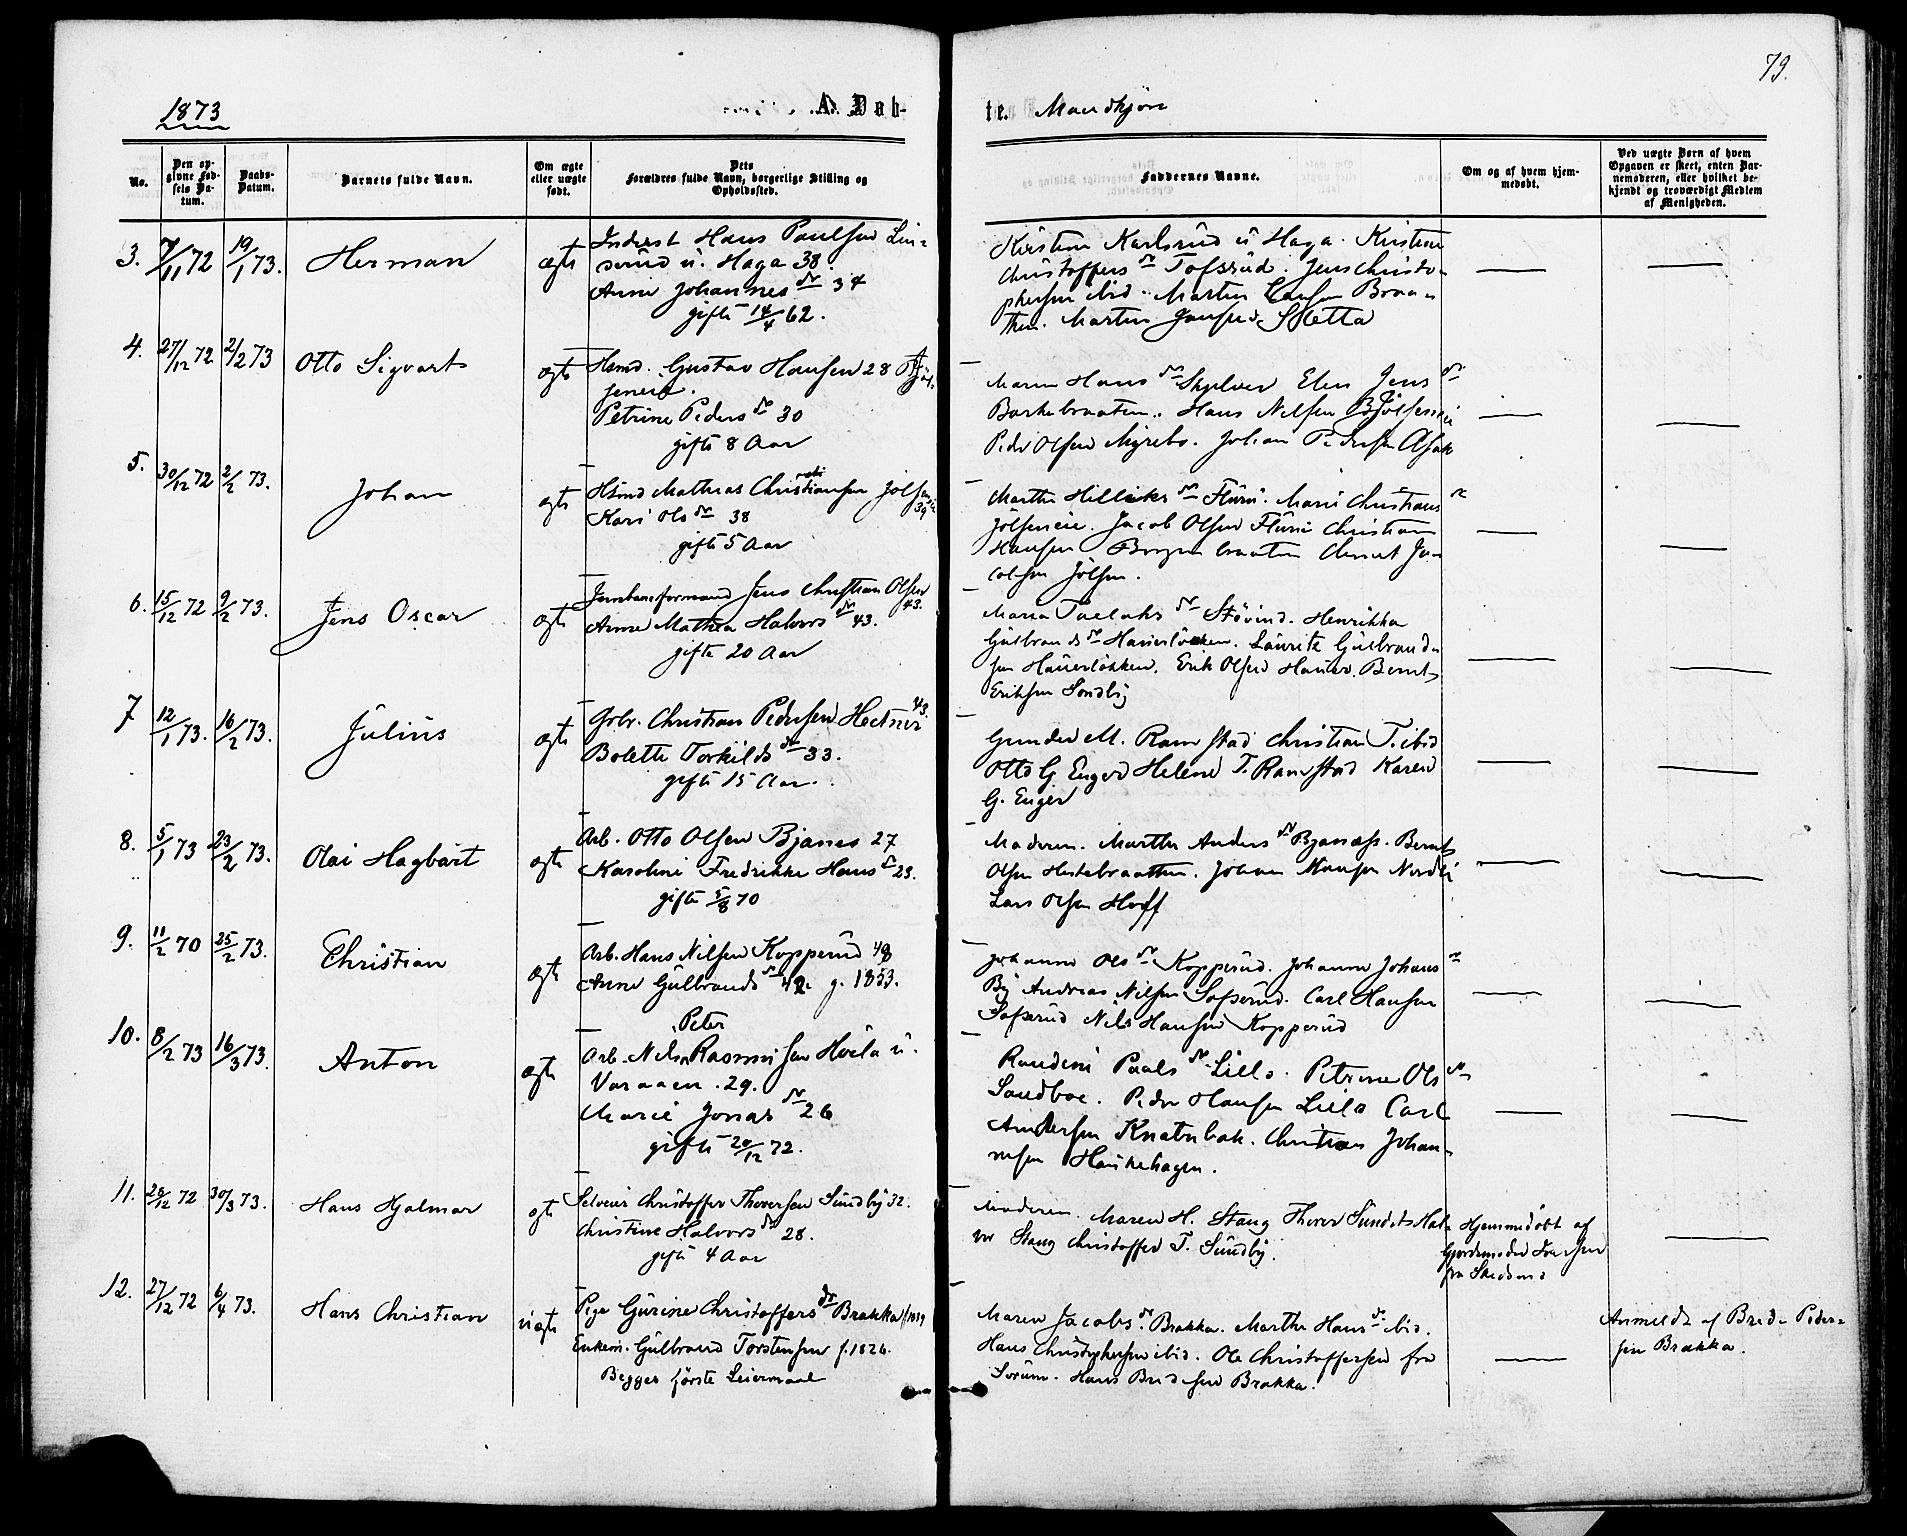 79.
1873 A. Døb-
te. Mandkjøn
No.
Den op-
givne Fød-
sels Da-
tum.
Daabs-
Datum.
Barnets fulde Navn.
Om ægte
eller uægte
født.
Dets
Forældres fulde Navn, borgerlige Stilling og
Opholdssted.
Faddernes Navne.
Om og af hvem hjem-
medøbt.
Ved uægte Børn af hvem
Opgaven er skeet, enten Bar-
nemoderen, eller hvilket be-
kjendt og troværdigt Medlem
af Menigheden.
3. 7/11 72 19/1 73. Herman ægte
Inderst Hans Paulsen Lin-
serud u. Haga 38.
Anne Johannesdr 34
gifte 14/4 62.
Kirstine Karlsrud u Haga. Kirstine
Christoffersdr Tofsrud. Jens Christo-
phersen ibid. Martin Larsen Braa-
then. Martin Jensen Sletta
4. 27/12 72 2/2 73 Otto Sigvart ægte
Hsmd. Gustav Hansen 28
Petrine Pedersdr 30
gifte 8 Aar
Maren Hansdr Skulver Elen Jensdr
Barkebraaten. Hans Nilsen
Peder Olsen Myrebo. Johan Pedersen Asak
5. 30/12 72 2/2 73. Johan ægte
Hsmd Mathias Christiansen Jølsen 39
Kari Olsdr 38
gifte 5 Aar
Marthe dr Fluni. Marie Christiansdr
Jølseneie. Jacob Olsen Fluni Christian
Hansen braaten Ja-
cobsen Jølsen.
6. 15/12 72 9/2 73. Jens Oscar ægte
Jernbaneformand Jens Christian Olsen
43.
Anne Mathea Halvorsdr 43.
gifte 20 Aar
Maria dr Støvind. Henrikka
Gulbrandsdr Hauerløkken. Lauritz Gulbrand-
sen Hauerløkken. Erik Olsen Hauer. Bernt
Eriksen Sundby
7 12/1 73. 16/2 73. Julius ægte
Gbr. Christian Pedersen 43.
Bolette Torkildsdr 33.
gifte 15 Aar.
Gunder M. Ramstad Christian T. ibid
Otto G. Enger Helene T. Ramstad Karen
G. Enger
8. 5/1 73 23/2 73. Olai Hagbart ægte
Arb. Otto Olsen Bjanes 27
Karoline Fredrikke Hansdr 23.
gifte 5/8 70
Moderen. Marthe Andersdr Bjanæss. Bernt
Olsen Hestebraatten. Johan Hansen Nordbi
Lars Olsen Hoff
9. 11/2 70 25/2 73. Christian ægte
Arb. Hans Nilsen Kopperud 48
Anne Gulbrandsdr 42. g. 1853.
Johanne Olsdr Kopperud. Johanne Johansdr
By Andreas Nilsen Sofserud. Carl Hansen
Sofserud Nils Hansen Kopperud
10. 8/2 73 16/3 73. Anton ægte
Peter
Arb. Nils Rasmussen Hvila u.
Varaaen. 29.
Marie Jonasdr 26
gifte 20/12 72.
Randine Paalsdr Lillo. Petrine Olsdr
Sandboe. Peder Hansen Lillo Carl
Andersen Knatubak. Christian Johan-
nesen Haukehagen.
11. 26/12 72 30/3 73. Hans Hjalmar ægte
Selveier Christoffer Thoresen Sundby 32.
Christine Halvorsdr 28.
gifte 4 Aar
Moderen. Maren H. Stang Thorer Sundet Hal-
vor Stang Christoffer T. Sundby.
Hjemmedøbt af
Gjordemoder
fra Skedsmo
12. 27/12 72 6/4 73. Hans Christian uægte
Pige Gurine Christoffersdr Brakka f. 1839
Enkem. Gulbrand Torstensen f. 1826.
Begges første Leiermaal
Maren Jacobsdr. Brakka. Marthe Hansdr ibid.
Hans Christophersen ibid. Ole Christoffersen fra
Sørum. Hans Bredesen Brakka.
Anmeldt af Brede Peder-
sen Brakka.